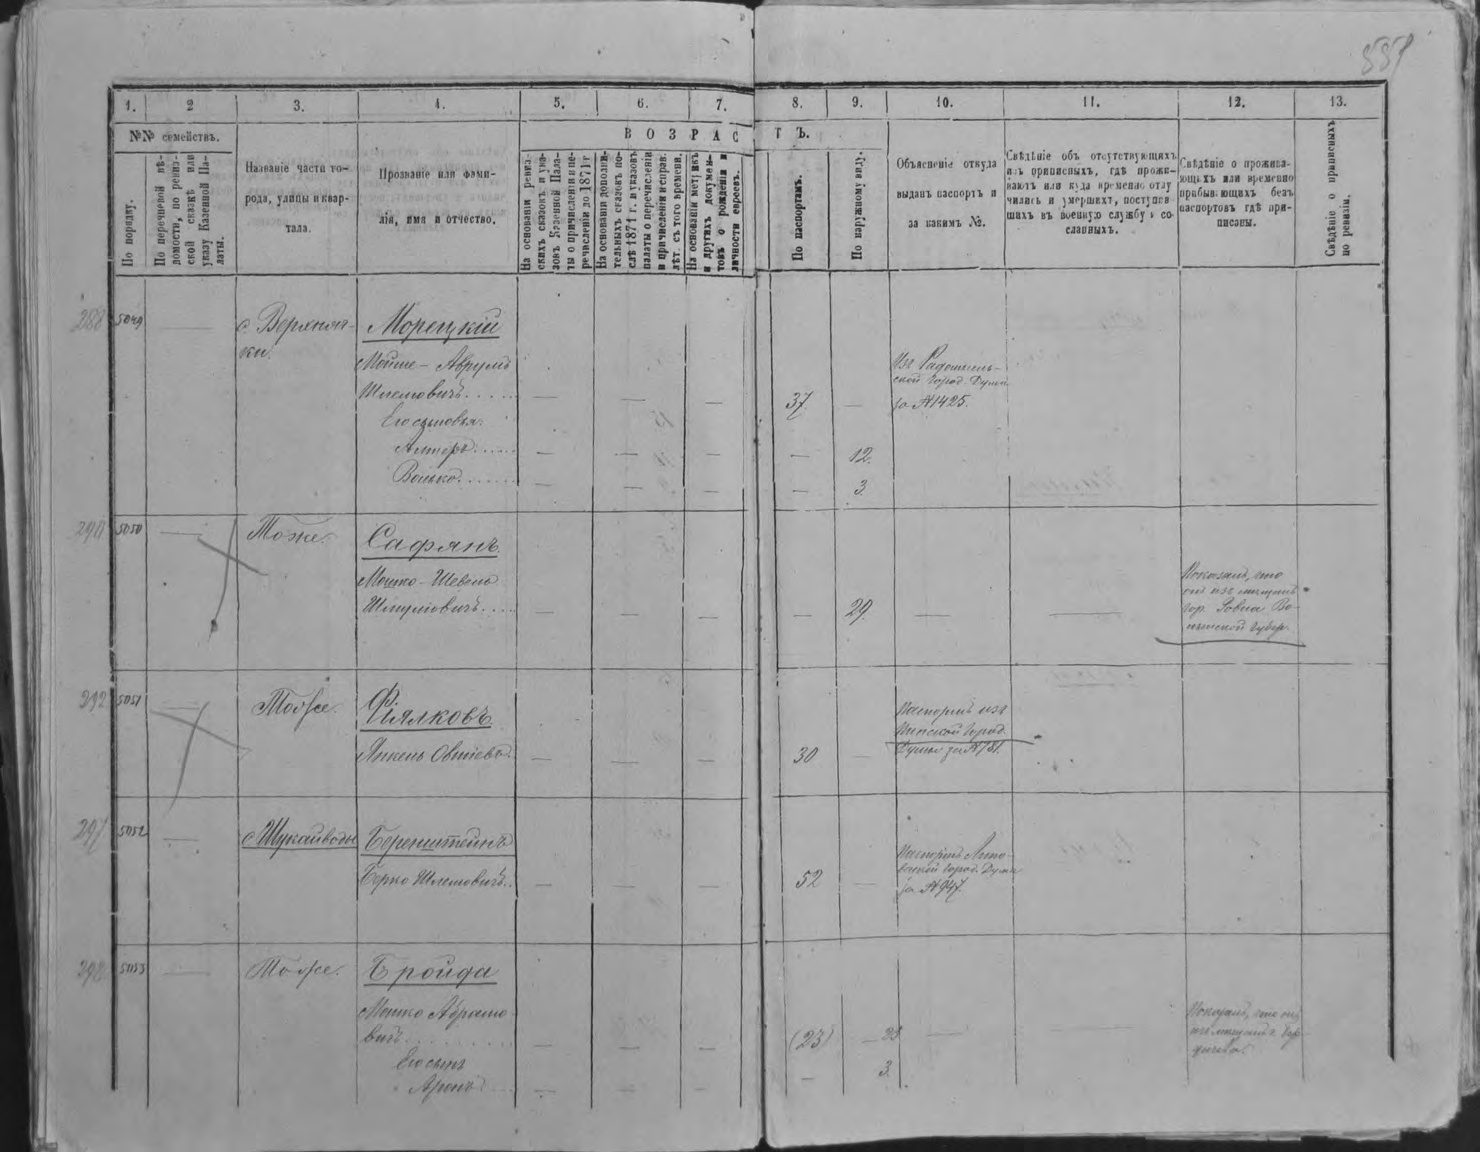 1.
2
3.
4.
5.
6.
7.
8.
9.
10.
11.
12.
13.
№№ семействъ.
По порядку.
По перечневой вѣ-
домости, по ревиз-
ской сказкѣ или
указу Казенной Па-
латы.
Названіе части го-
рода, улицы и квар-
тала.
Прозваніе или фами-
лія, имя и отчество.
ВОЗРАСТЪ.
На основаніи ревиз-
скихъ сказокъ и ука-
зовъ Казенной Пала-
ты о причисленіи и пе-
речисленіи до 1871 г
На основаніи дополни-
тельныхъ сказокъ по-
слѣ 1871 г. и указовъ
палаты о перечисленіи
и причисленіи и исправ.
лѣт. съ того времени.
На основаніи метрикъ
и другихъ докумен-
товъ о рожденіи и
личности евреевъ.
По паспортамъ.
По наружному виду.
Объясненіе откуда
выданъ паспортъ и
за какимъ №.
Свѣдѣніе объ отсутствующихъ
изъ приписныхъ, гдѣ прожи-
ваютъ или куда временно отлу
чились и умершихъ, поступив-
шихъ въ военную службу и со-
сланныхъ.
Свѣдѣніе о прожива-
ющихъ или временно
прибывающихъ безъ
паспортовъ гдѣ при-
писаны.
Свѣдѣніе о приписанныхъ
по ревизіи.
288
5049
с. Верхняч-
ки.
Морецкій
Мойше-Аврумъ
Шлемовичъ
37
Изъ Радомысль-
ской Город. Думы
за №1425.
Его сыновья:
Алтеръ
12.
Волько
3.
290
5050
Тоже.
Сафянъ
Мошко-Шевель
Шмулiовичъ
29.
Показалъ, что
онъ изъ мещанъ
гор. Ровна Во-
лынской губер.
292
5051
Тоже.
Фіялковъ
Янкель Овшіевъ
30
Паспортъ изъ
Пинской Город.
Думы за №781.
297
5052
с. Шукайводы
Беренштейнъ
Берко Шлемовичъ
52
Паспортъ Лито-
вской Город. Думы
за №947.
298
5053
Тоже.
Бройда
Мошко Абрамо-
вичъ
(23)
23
Показалъ, что онъ
изъ мещанъ г. Бер-
дичева.
Его сынъ
Аронъ
3.